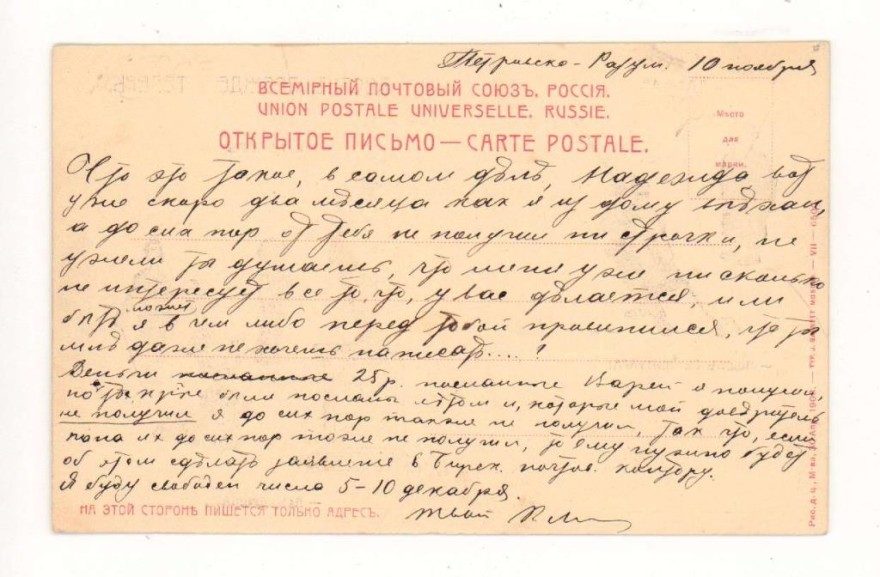 Петровско-Разум. 10 ноября
ВСЕМІРНЫЙ ПОЧТОВЫЙ СОЮЗЪ. РОССІЯ.
UNION POSTALE UNIVERSELLE. RUSSIE.
ОТКРЫТОЕ ПИСЬМО — CARTE POSTALE.
Мѣсто
для
марки.
Что это такое, в самом дѣлѣ, Надежда вот
уже скоро два мѣсяца как я из дому выѣхал,
а до сих пор от тебя не получил ни строчки, не
ужели ты думаешь, что меня уже нисколько
не интересует все то, что, у вас дѣлается, или
быть может я в чем либо перед тобой провинился, что ты
мнѣ даже не хочешь написать....?
Деньги 25 р. посланные Варей я получил
но были посланы и, которые мой
не получил я до сих пор также не получил, так что, если
папа их до сих пор тоже не получил, то ему нужно будет
об этом сдѣлать заявление в почтов. контору.
Я буду свободен числа 5-10 декабря.
Твой
НА ЭТОЙ СТОРОНѢ ПИШЕТСЯ ТОЛЬКО АДРЕСЪ.